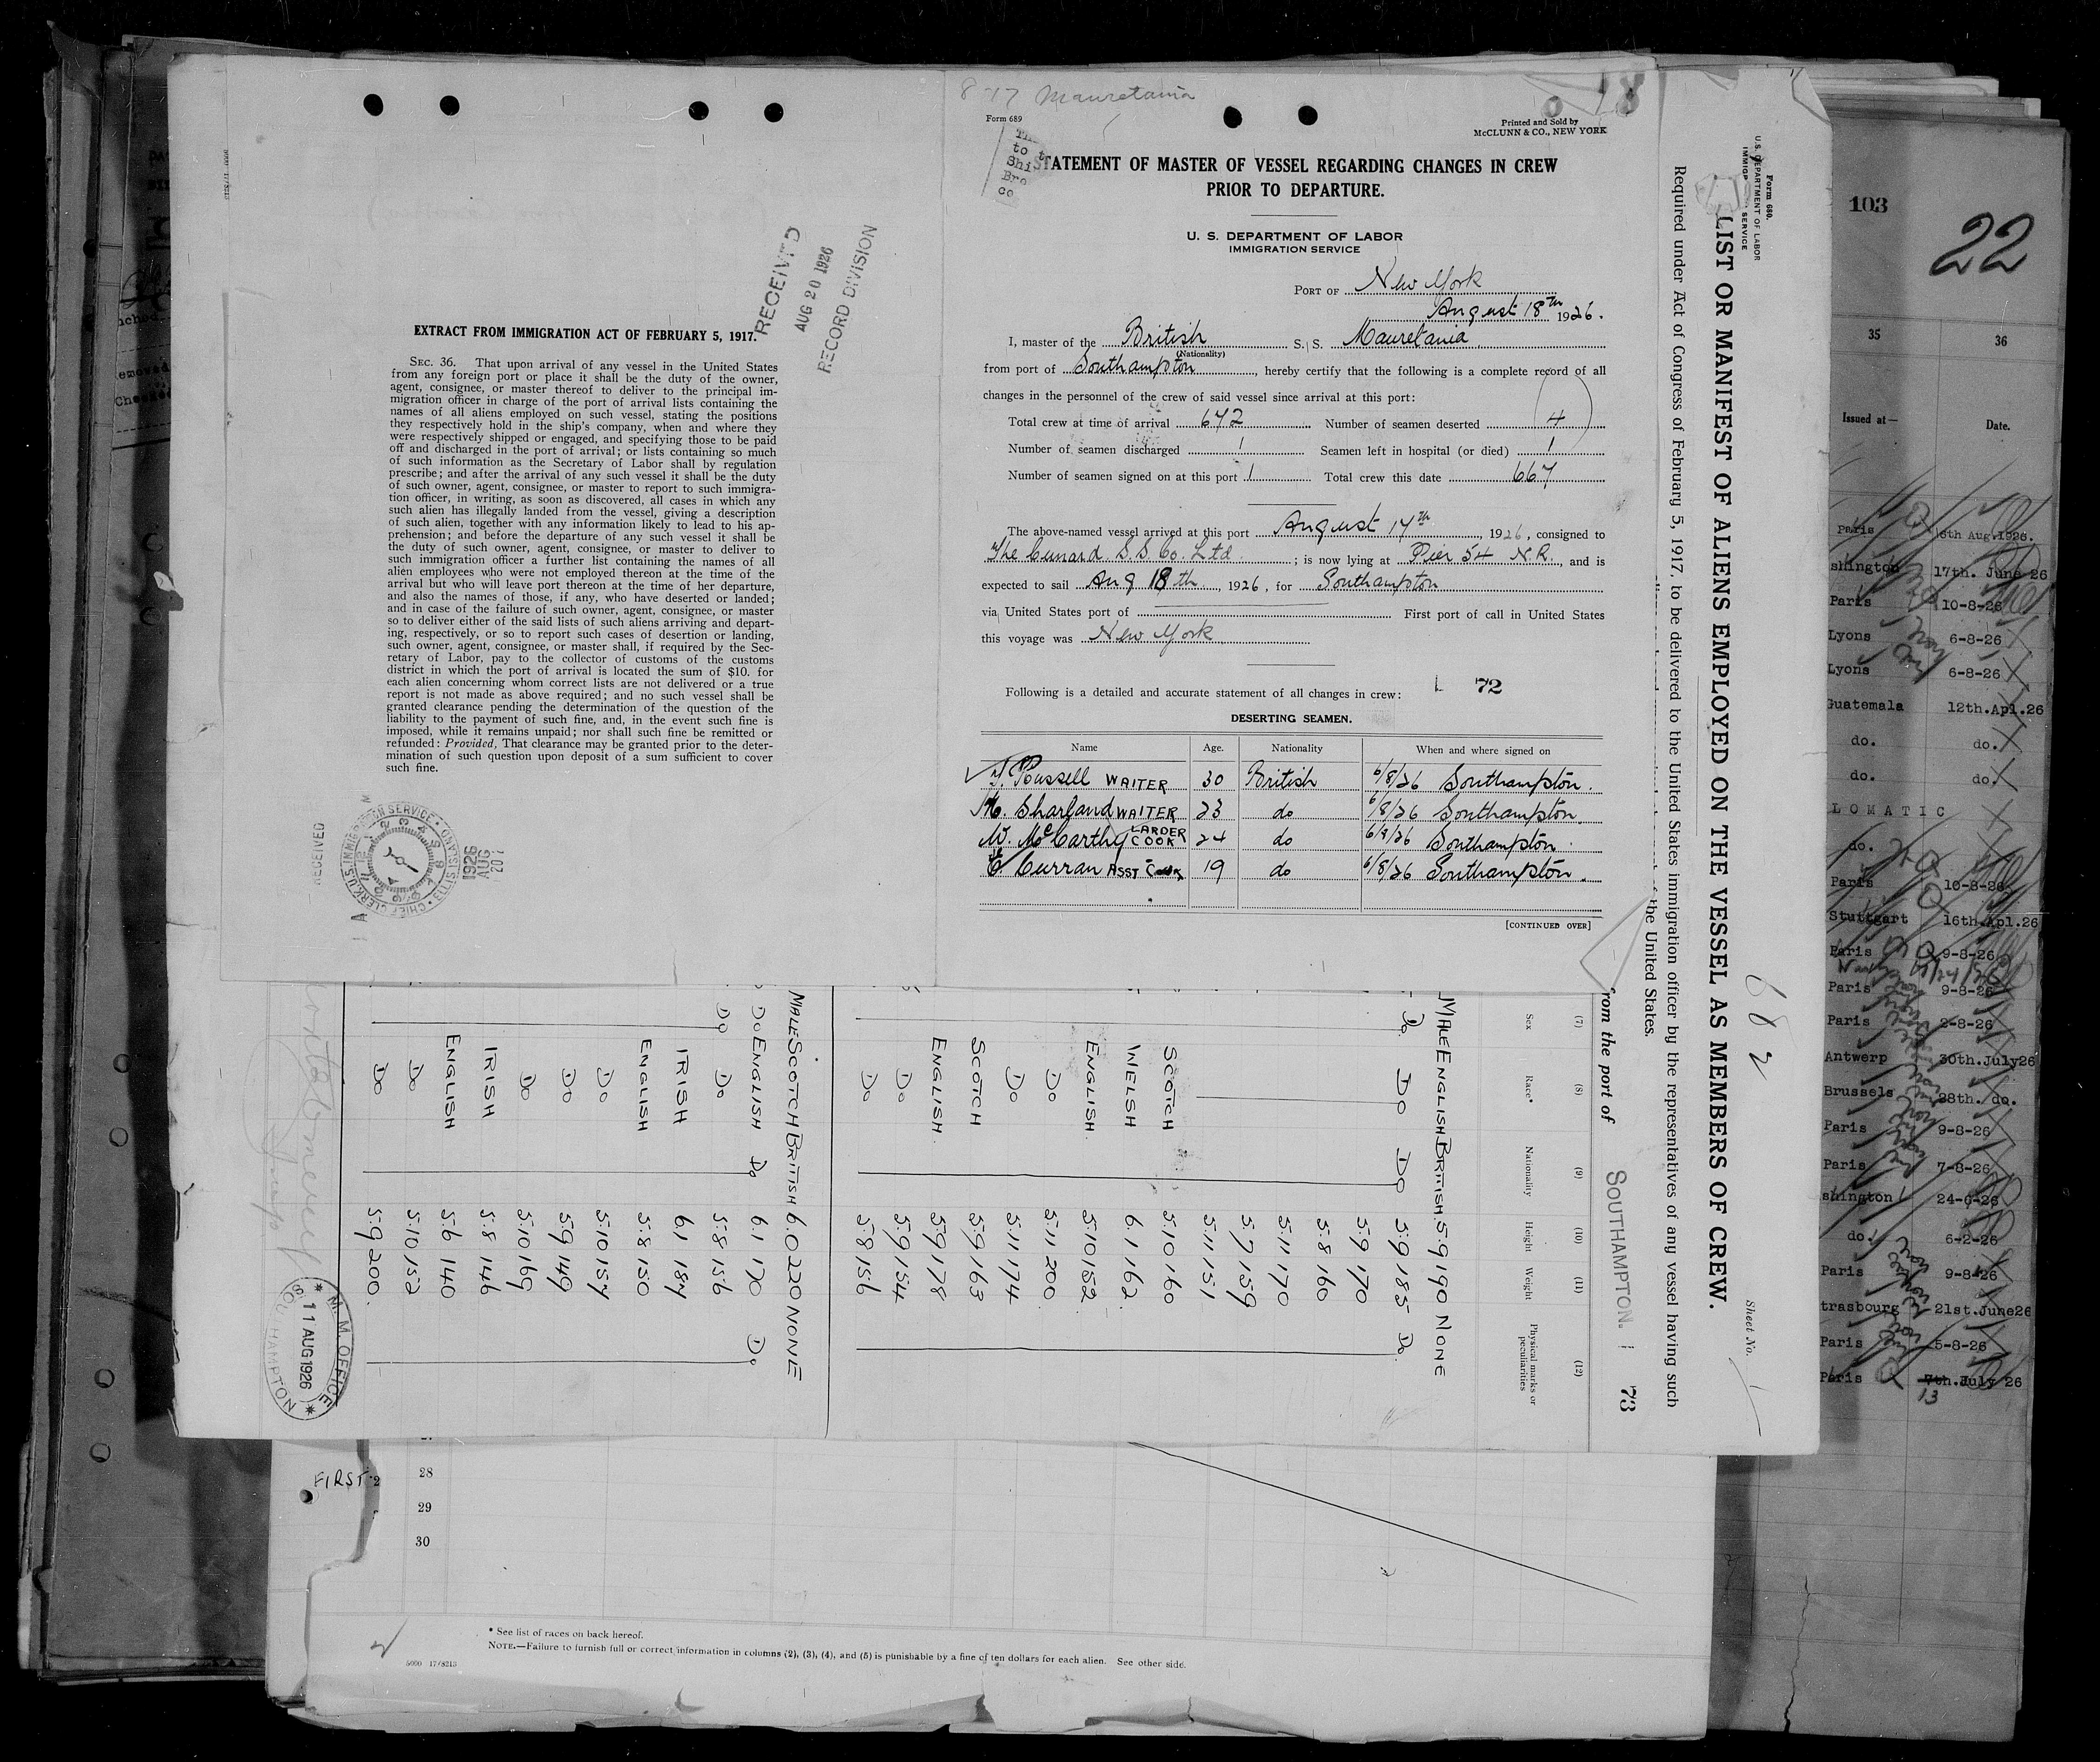 8-17 Mauretania
Form 689
Printed and Sold by
McCLUNN & CO., NEW YORK
STATEMENT OF MASTER OF VESSEL REGARDING CHANGES IN CREW
PRIOR TO DEPARTURE.
U. S. DEPARTMENT OF LABOR
IMMIGRATION SERVICE
PORT OF New York
August 18th 1926.
I, master of the British S. S. Mauretania
(Nationality)
from port of Southampton, hereby certify that the following is a complete record of all
changes in the personnel of the crew of said vessel since arrival at this port:
Total crew at time of arrival 672 Number of seamen deserted 4
Number of seamen discharged 1 Seamen left in hospital (or died) 1
Number of seamen signed on at this port 1 Total crew this date 667
The above-named vessel arrived at this port August 17th, 1926, consigned to
The Cunard S.S. Co. Ltd; is now lying at Pier 54 N.R., and is
expected to sail Aug 18th, 1926, for Southampton
via United States port of First port of call in United States
this voyage was New York
Following is a detailed and accurate statement of all changes in crew: 72
DESERTING SEAMEN.
Name Age. Nationality When and where signed on
Russell WAITER 30 British 6/8/26 Southampton.
Sharland WAITER 23 do 6/8/26 Southampton.
W. McCarthy LARDER COOK 24 do 6/8/26 Southampton.
Curran ASST COOK 19 do 6/8/26 Southampton.
[CONTINUED OVER]
RECEIVED
AUG 20 1926
RECORD DIVISION
EXTRACT FROM IMMIGRATION ACT OF FEBRUARY 5, 1917.
SEC. 36. That upon arrival of any vessel in the United States
from any foreign port or place it shall be the duty of the owner,
agent, consignee, or master thereof to deliver to the principal im-
migration officer in charge of the port of arrival lists containing the
names of all aliens employed on such vessel, stating the positions
they respectively hold in the ship's company, when and where they
were respectively shipped or engaged, and specifying those to be paid
off and discharged in the port of arrival; or lists containing so much
of such information as the Secretary of Labor shall by regulation
prescribe; and after the arrival of any such vessel it shall be the duty
of such owner, agent, consignee, or master to report to such immigra-
tion officer, in writing, as soon as discovered, all cases in which any
such alien has illegally landed from the vessel, giving a description
of such alien, together with any information likely to lead to his ap-
prehension; and before the departure of any such vessel it shall be
the duty of such owner, agent, consignee, or master to deliver to
such immigration officer a further list containing the names of all
alien employees who were not employed thereon at the time of the
arrival but who will leave port thereon at the time of her departure,
and also the names of those, if any, who have deserted or landed;
and in case of the failure of such owner, agent, consignee, or master
so to deliver either of the said lists of such aliens arriving and depart-
ing, respectively, or so to report such cases of desertion or landing,
such owner, agent, consignee, or master shall, if required by the Sec-
retary of Labor, pay to the collector of customs of the customs
district in which the port of arrival is located the sum of $10. for
each alien concerning whom correct lists are not delivered or a true
report is not made as above required; and no such vessel shall be
granted clearance pending the determination of the question of the
liability to the payment of such fine, and, in the event such fine is
imposed, while it remains unpaid; nor shall such fine be remitted or
refunded: Provided, That clearance may be granted prior to the deter-
mination of such question upon deposit of a sum sufficient to cover
such fine.
RECEIVED
1926
AUG
20
Form 680.
U.S. DEPARTMENT OF LABOR
SERVICE
LIST OR MANIFEST OF ALIENS EMPLOYED ON THE VESSEL AS MEMBERS OF CREW.
Sheet No.
682
Required under Act of Congress of February 5, 1917, to be delivered to the United States immigration officer by the representatives of any vessel having such
the United States.
from the port of SOUTHAMPTON. 73
(7) (8) (9) (10) (11) (12)
Sex Race* Nationality Height Weight Physical marks or peculiarities
MALE ENGLISH BRITISH 5.9 190 NONE
Do. Do Do 5.9 185 Do.
5.9 170
5.8 160
5.11 170
5.7 159
5.11 151
SCOTCH 5.10 160
WELSH 6.1 162
ENGLISH 5.10 152
Do 5.11 200
Do 5.11 174
SCOTCH 5.9 163
ENGLISH. 5.9 178
Do 5.9 154
Do 5.8 156
MALE SCOTCH BRITISH 6.0 220 NONE
Do ENGLISH Do 6.1 170 Do
Do Do 5.8 156
IRISH 6.1 184
ENGLISH 5.8 150
Do 5.10 154
Do 5.9 149
Do 5.10 169
IRISH 5.8 146
ENGLISH 5.6 140
Do 5.10 152
Do 5.9 200.
M. M. OFFICE
11 AUG 1926
SOUTHAMPTON
103
22
35 36
Issued at— Date.
Paris 6th Aug.1926.
shington 17th. June 26
Paris 10-8-26
Lyons 6-8-26
Lyons 6-8-26
Guatemala 12th.Apl.26
do. do.
do. do.
LOMATIC
do.
Paris 10-8-26
Stuttgart 16th.Apl.26
Paris 9-8-26
Paris 9-8-26
Paris 2-8-26
Antwerp 30th.July26
Brussels 28th. do.
Paris 9-8-26
Paris 7-8-26
shington 24-6-26
do. 6-2-26
Paris 9-8-26
trasbourg 21st.June26
Paris 5-8-26
Paris 7th.July 26
13
FIRST
28
29
30
* See list of races on back hereof.
NOTE.—Failure to furnish full or correct information in columns (2), (3), (4), and (5) is punishable by a fine of ten dollars for each alien. See other side.
5000 17/8213